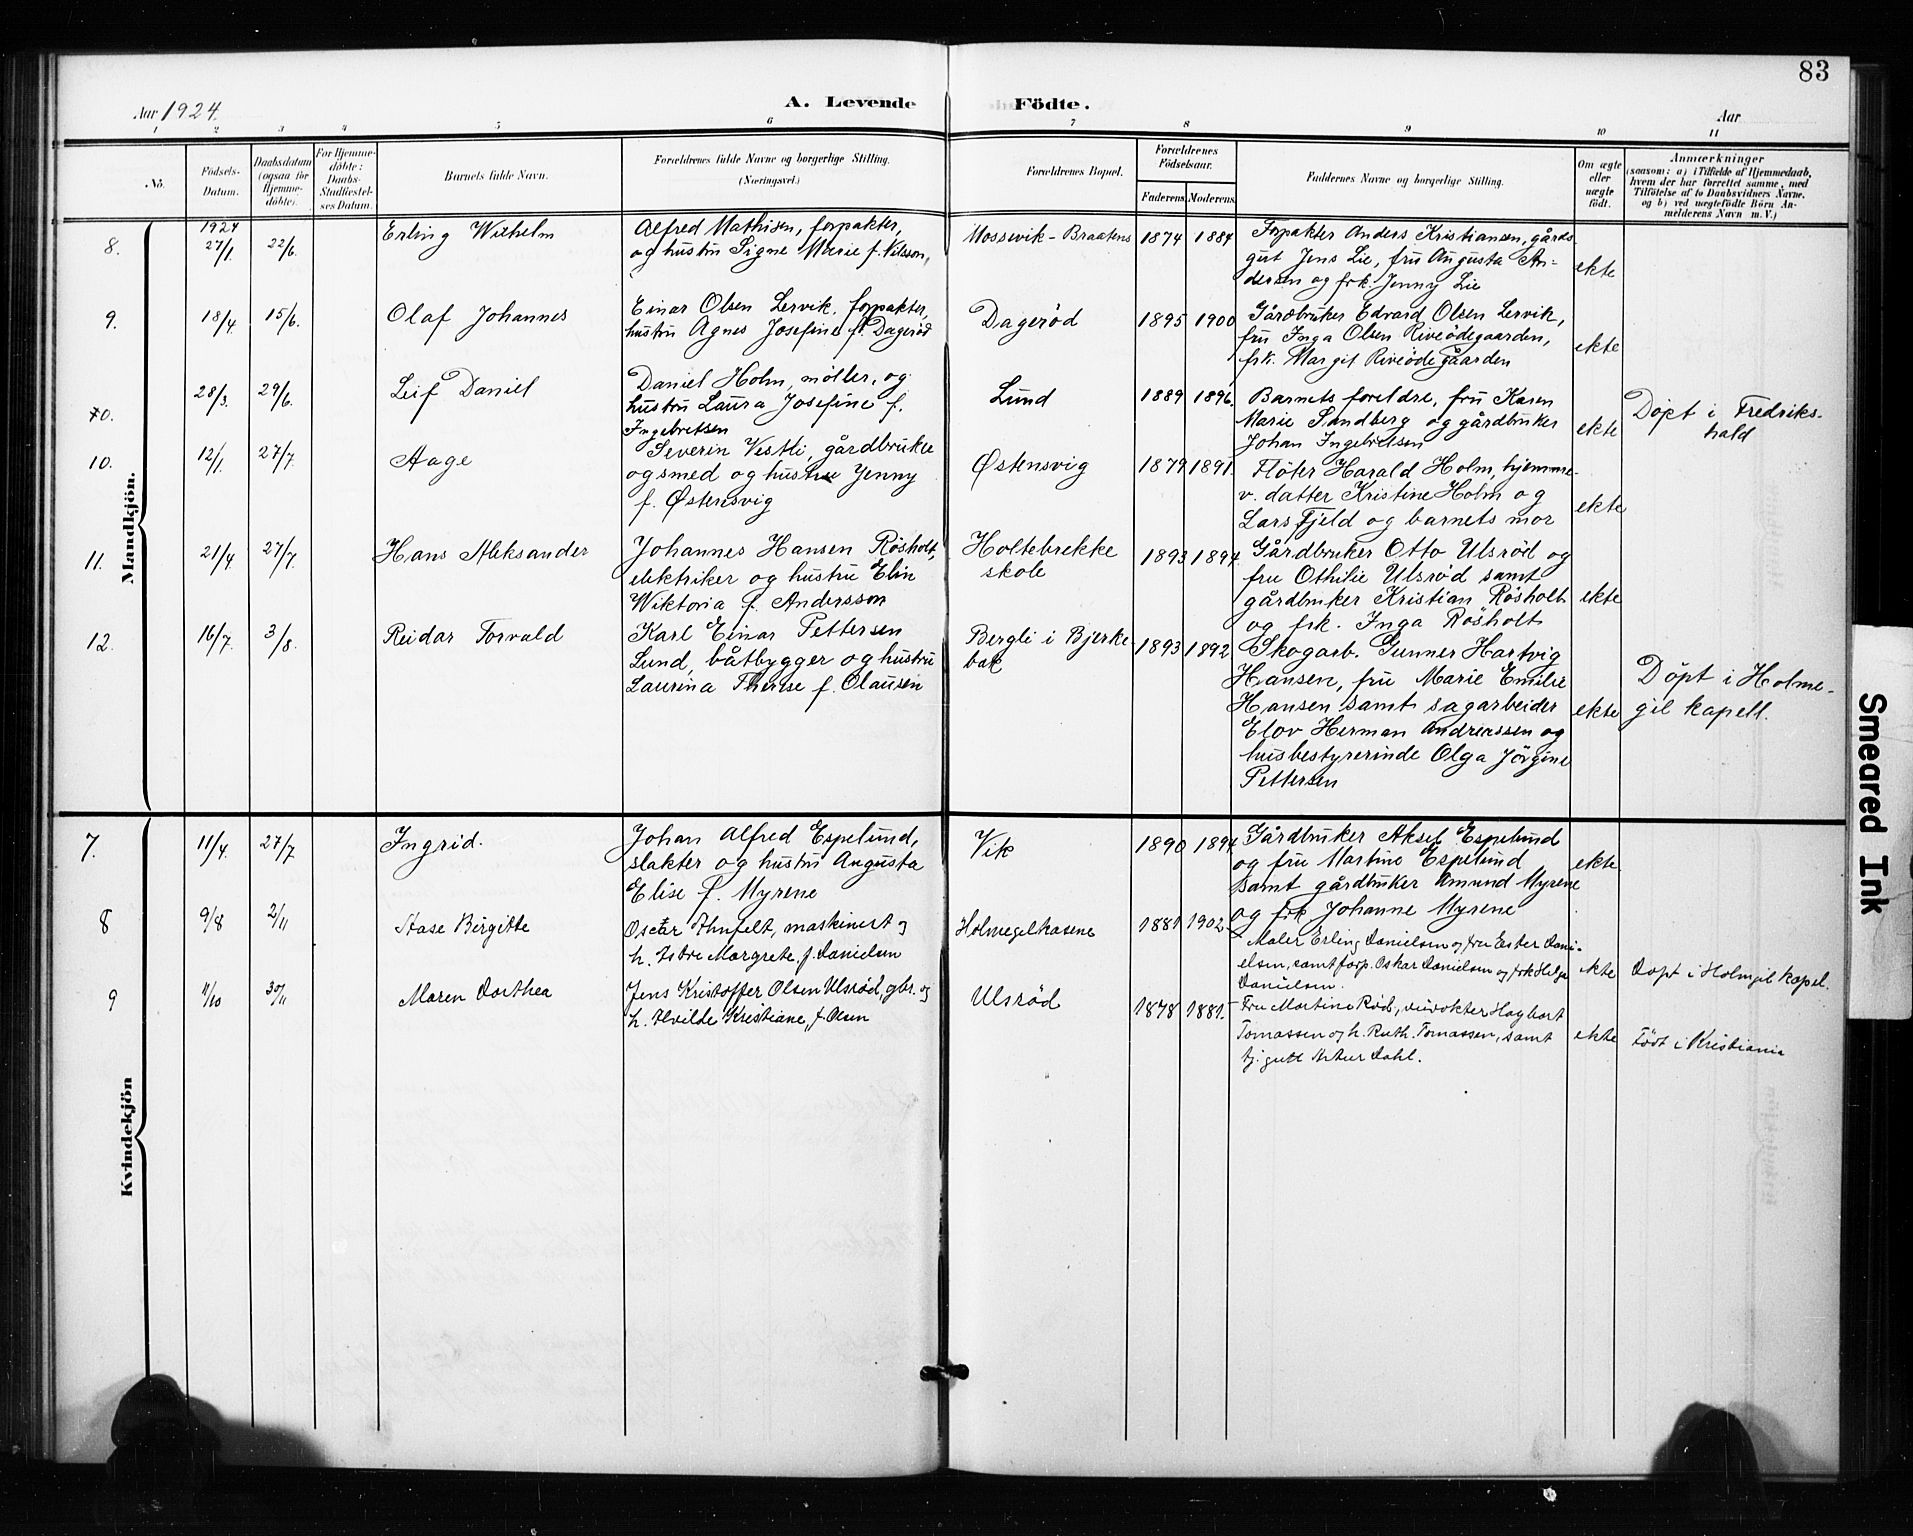 83
Aar 1924.
A. Levende Födte.
Aar
1 2 3 4 5 6 7 8 9 10 11
No.
Födsels-Datum.
Daabsdatum (ogsaa for Hjemmedöbte).
For Hjemmedöbte: Daabs-Stadfæstelses Datum.
Barnets fulde Navn.
Forældrenes fulde Navne og borgerlige Stilling.
(Næringsvei.)
Forældrenes Bopæl.
Forældrenes Födselsaar.
Faderens. Moderens.
Faddernes Navne og borgerlige Stilling.
Om ægte eller uægte födt.
Anmærkninger
(saasom: a) i Tilfælde af Hjemmedaab, hvem der har forrettet samme, med Tilföielse af to Daabsvidners Navne, og b) ved uægtefödte Börn Anmelderens Navn m. V.)
Mandkjön.
8. 1924 27/1. 22/6. Erling Wilhelm
Alfred Mathisen, forpakter,
og hustru Signe Marie f. Nilsson,
Mossevik-Braatens 1874 1884
Forpakter Anders Kristiansen, gårds
gut Jens Lie, fru Augusta An-
dersen og frk. Jenny Lie
ekte
9. 18/4. 15/6. Olaf Johannes
Einar Olsen Lervik, forpakter,
hustru Agnes Josefine f. Dagerød
Dagerød 1895 1900
Gårdbruker Edvard Olsen Lervik,
fru Inga Olsen Riveødegaarden,
frk. Margit Riveødegaarden
ekte
10. 28/3. 29/6. Leif Daniel
Daniel Holm, møller, og
hustru Laura Josefine f.
Ingebretsen
Lund 1889 1896.
Barnets foreldre, fru Karen
Marie Sandberg og gårdbruker
Johan Ingebretsen
ekte
Døpt i Fredriks-
hald
10. 12/1. 27/7. Aage
Severin Vestli, gårdbruker
og smed og hustru Jenny
f. Østensvig
Østensvig 1879 1891.
Fløter Harald Holm, hjemme-
v. datter Kristine Holm og
Lars Fjeld og barnets mor
ekte
11. 21/4. 27/7. Hans Aleksander
Johannes Hansen Røsholt,
elektriker og hustru Elin
Wiktoria f. Andersson
Holtebrekke
skole
1893 1894.
Gårdbruker Otto Ulsrød og
fru Othilie Ulsrød samt
gårdbruker Kristian Røsholt
og frk. Inga Røsholt
ekte
12. 16/7. 3/8. Reidar Torvald
Karl Einar Pettersen
Lund, båtbygger og hustru
Laurina Therese f. Olausen
Bergli i Bjerke
bak
1893 1892
Skogarb. Gunner Hartvig
Hansen, fru Marie Emilie
Hansen samt sagarbeider
Elov Herman Andreassen og
husbestyrerinde Olga Jörgine
Pettersen
ekte
Döpt i Holme-
gil kapell.
Kvindekjön
7. 11/4. 27/7 Ingrid.
Johan Alfred Espelund,
slakter og hustru Augusta
Elise f. Myrene
Vik 1890 1894
Gårdbruker Aksel Espelund
og fru Martine Espelund
samt gårdbruker Amund Myrene
og frk Johanne Myrene
ekte
8 9/8 2/11 Aase Birgitte
Oscar Ahnfelt, maskinist og
h. Margrete, f. Danielsen
Holmegelhasene 1881 1902.
Maler Erling Danielsen og fru Ester Dani-
elsen, samt forp. Oskar Danielsen og frk Helga
Danielsen.
ekte
Døpt i Holmgil kapel.
9 11/10 30/11 Maren Dorthea
Jens Kristoffer Olsen Ulsrød, gbr. og
h. Hvilde Kristiane, f. Olsen
Ulsrød 1878 1881.
Fru Martine Rød, Hagbart
Tomassen og h. Ruth Tomassen, samt
tj. gutt Artur Dahl.
ekte
Født i Kristiania
Smeared Ink